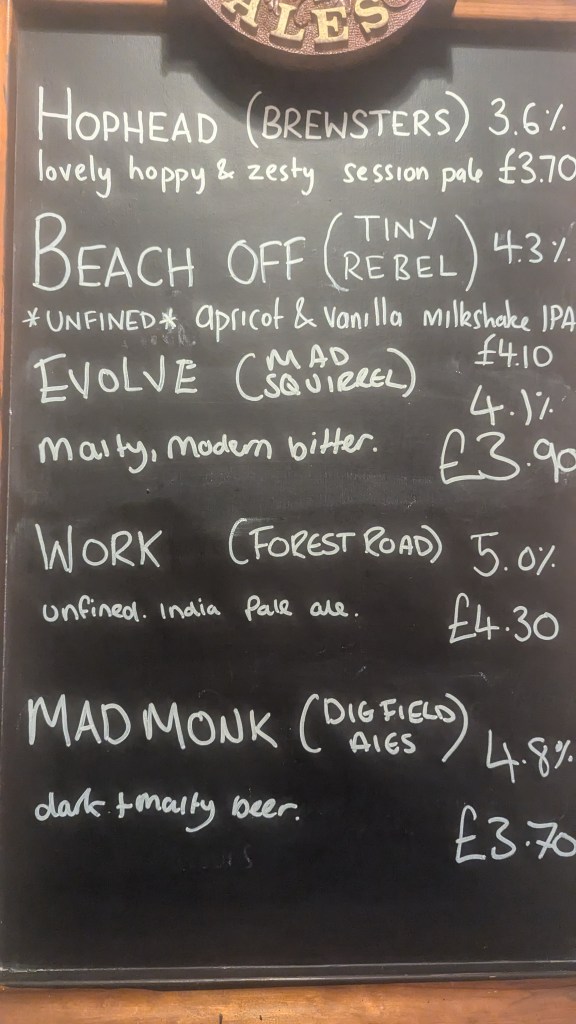 ALES
HOPHEAD (BREWSTERS) 3.6%
lovely hoppy & zesty session pale £3.70
BEACH OFF (TINY REBEL) 4.3%
*UNFINED* apricot & vanilla milkshake IPA
£4.10
EVOLVE (MAD SQUIRREL)
4.1%
Malty, Modern bitter. £3.90
WORK (FOREST ROAD) 5.0%
unfined. India Pale ale. £4.30
MAD MONK (DIGFIELD AlES) 4.8%
dark + malty beer.
£3.70